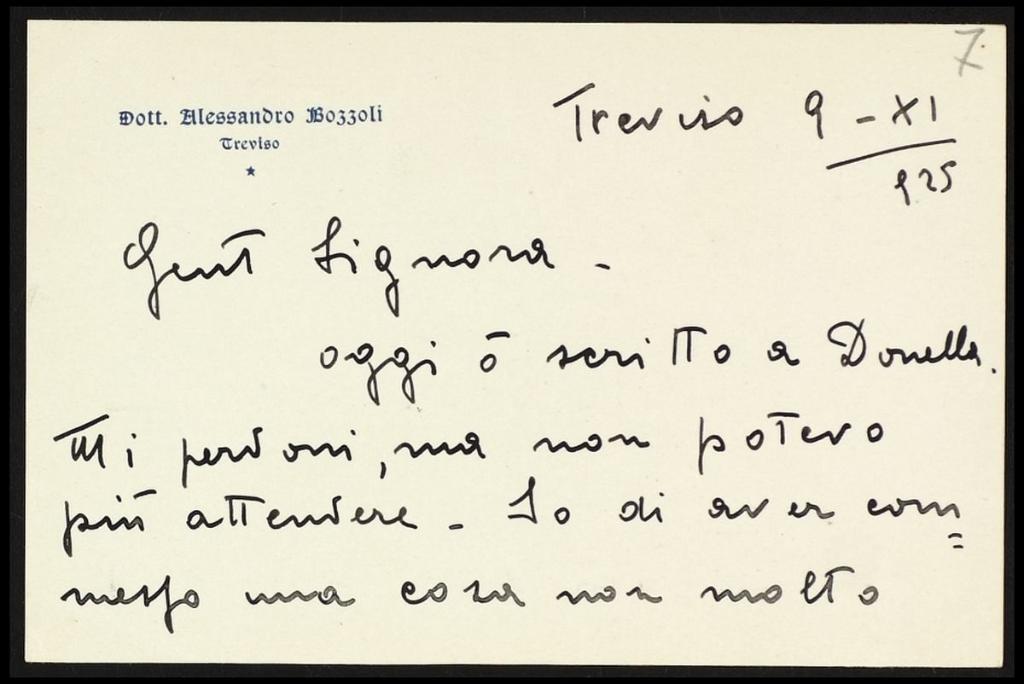 7.
Dott. Alessandro Bozzoli
Treviso
Treviso 9 - XI
925
Gent Signora -
oggi ō scritto a Donella.
Mi perdoni, ma non potevo
più attendere - So di aver com=
messo una cosa non molto